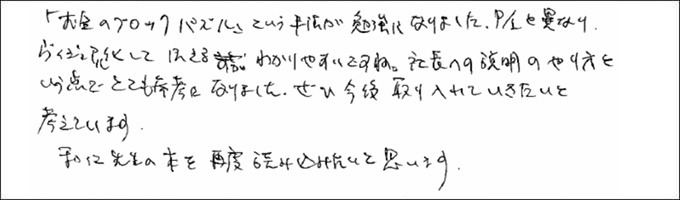 「お金のブロックパズル」という手法が勉強になりました。P/Lと異なり、
ビジュアル化して伝える わかりやすいですね。社長への説明のやり方と
いう点でとても参考になりました。ぜひ今後取り入れていきたいと
考えています。
和仁先生の本を再度読み込みたいと思います。